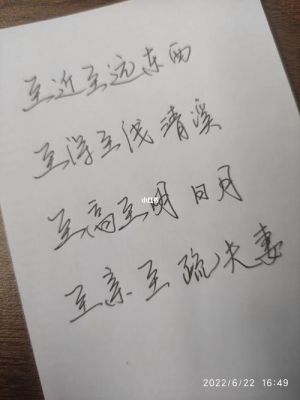 至近至远东西
至深至浅清溪
小红书
至高至明日月
至亲至疏夫妻
2022/6/22 16:49